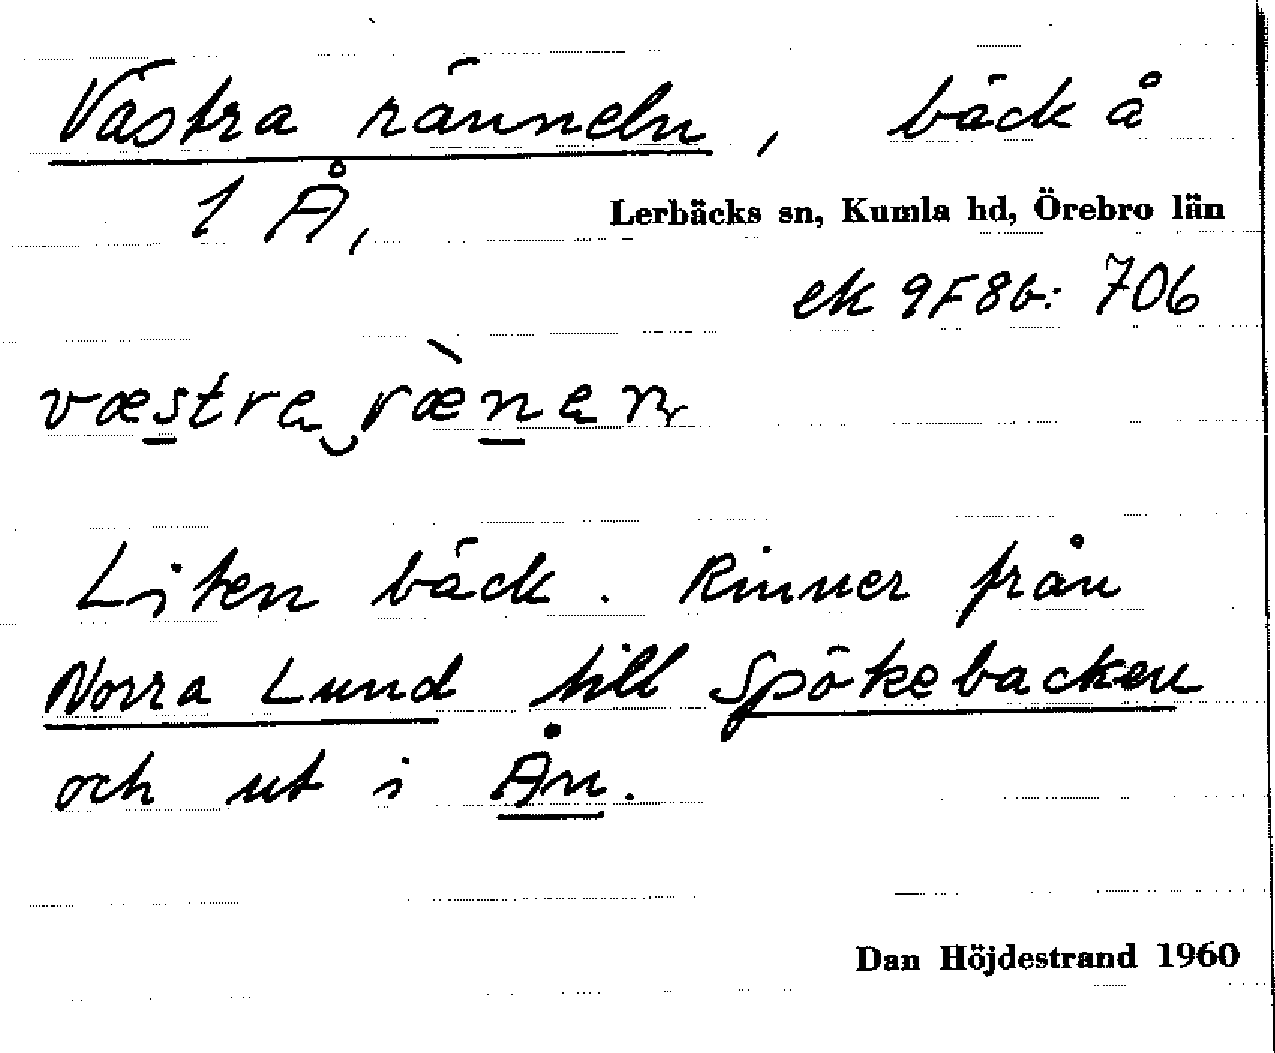 Västra ränneln, bäck å
1 Å,
Lerbäcks sn, Kumla hd, Örebro län
ek 9F8b: 706
Liten bäck. Rinner från
Norra Lund till Spökebacken
och ut i Ån.
Dan Höjdestrand 1960